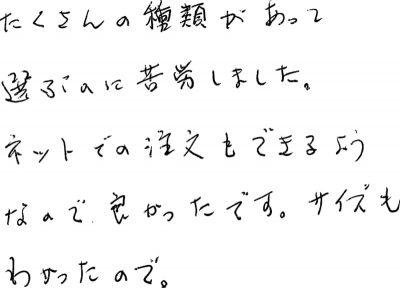 たくさんの種類があって
選ぶのに苦労しました。
ネットでの注文もできるよう
なので、良かったです。サイズも
わかったので。